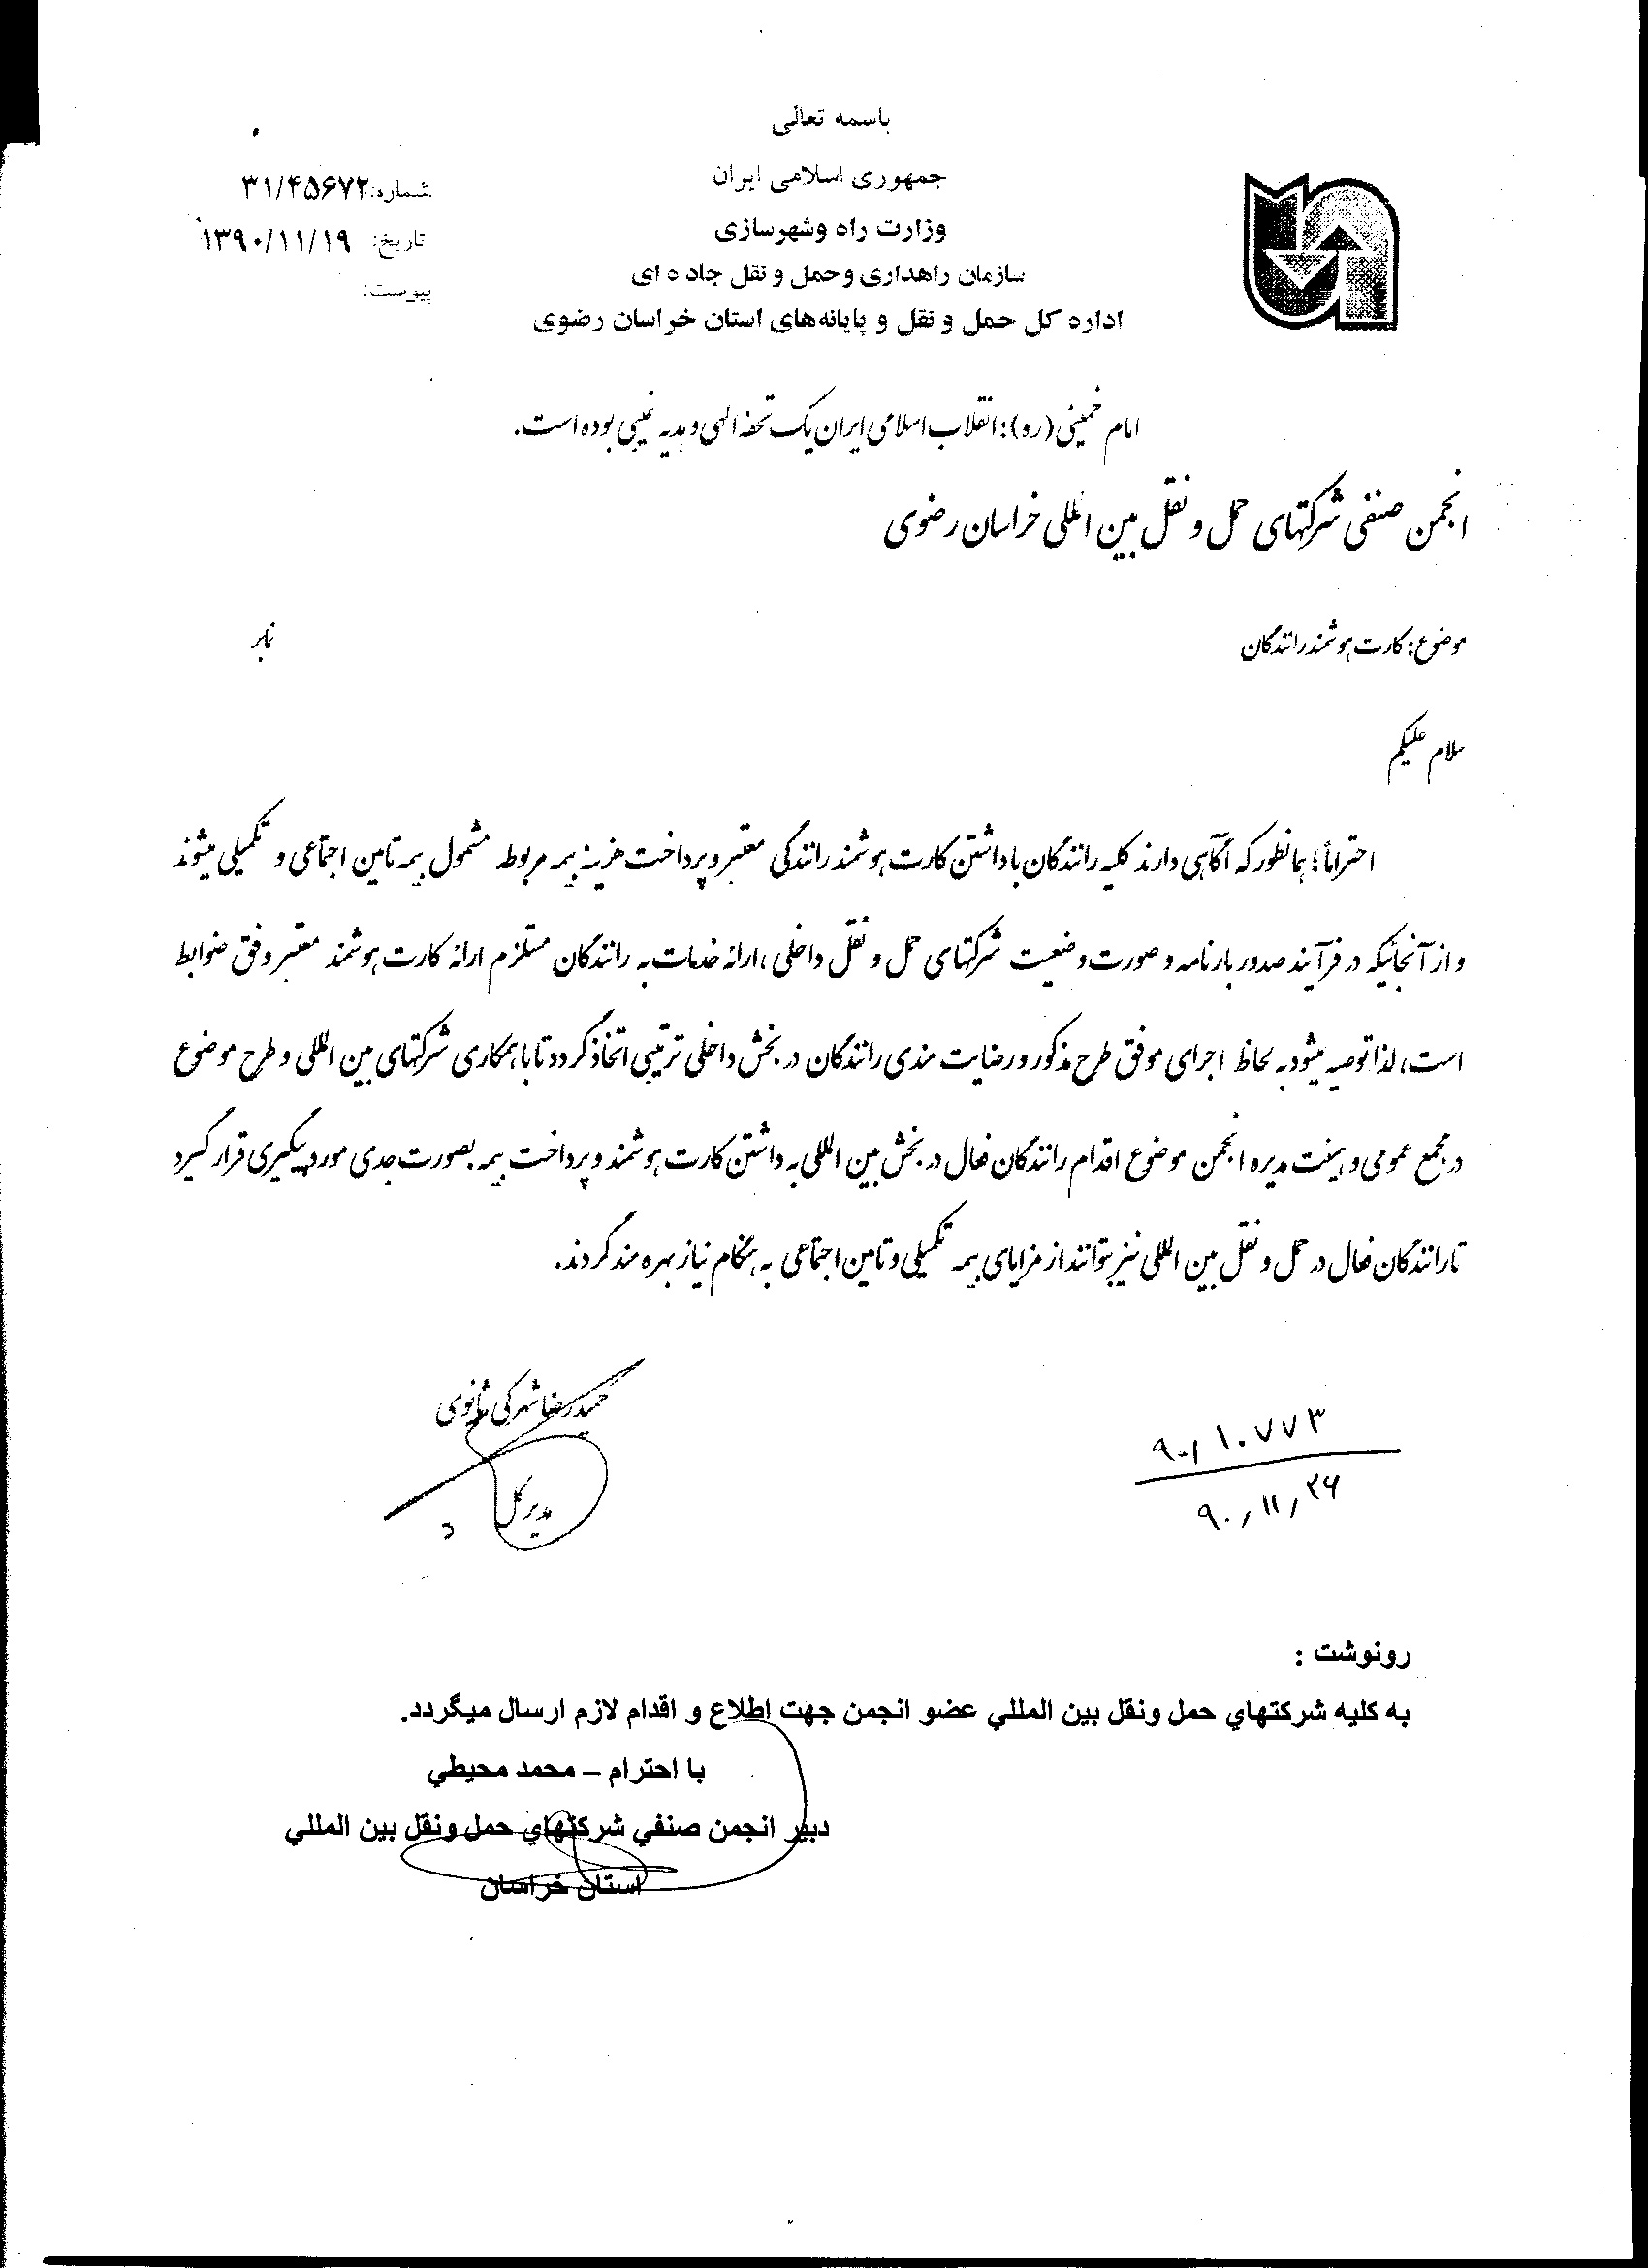 باسمه تعالی
جمهوری اسلامی ایران
وزارت راه وشهرسازی
سازمان راهداری وحمل و نقل جاده ای
اداره کل حمل و نقل و پایانه‌های استان خراسان رضوی
شماره: ۳۱/۴۵۶۷۲
تاریخ: ۱۳۹۰/۱۱/۱۹
پیوست:
امام خمینی(ره): انقلاب اسلامی ایران یک تحفه الهی و هدیه غیبی بوده است.
انجمن صنفی شرکتهای حمل و نقل بین المللی خراسان رضوی
موضوع: کارت هوشمند رانندگان
سلام علیکم
احتراماً؛ همانطور که آگاهی دارند کلیه رانندگان با داشتن کارت هوشمند رانندگی معتبر و پرداخت هزینه بیمه مربوطه مشمول بیمه تامین اجتماعی و تکمیلی میشوند
و از آنجائیکه در فرآیند صدور بارنامه و صورت وضعیت شرکتهای حمل و نقل داخلی، ارائه خدمات به رانندگان مستلزم ارائه کارت هوشمند معتبر وفق ضوابط
است، لذا توصیه میشود به لحاظ اجرای موفق طرح مذکور و رضایت مندی رانندگان در بخش داخلی ترتیبی اتخاذ گردد تا با همکاری شرکتهای بین المللی و طرح موضوع
در مجمع عمومی و هیئت مدیره انجمن موضوع اقدام رانندگان فعال در بخش بین المللی به داشتن کارت هوشمند و پرداخت بیمه بصورت جدی مورد پیگیری قرار گیرد
تا رانندگان فعال در حمل و نقل بین المللی نیز بتوانند از مزایای بیمه تکمیلی و تامین اجتماعی به هنگام نیاز بهره مند گردند.
حمیدرضا شهرکی ثانوی
مدیر کل
۹۰/۱۰۷۷۳
۹۰/۱۱/۲۶
رونوشت :
به کلیه شرکتهاي حمل ونقل بین المللي عضو انجمن جهت اطلاع و اقدام لازم ارسال میگردد.
با احترام – محمد محیطي
دبیر انجمن صنفي شرکتهاي حمل ونقل بین المللي
استان خراسان